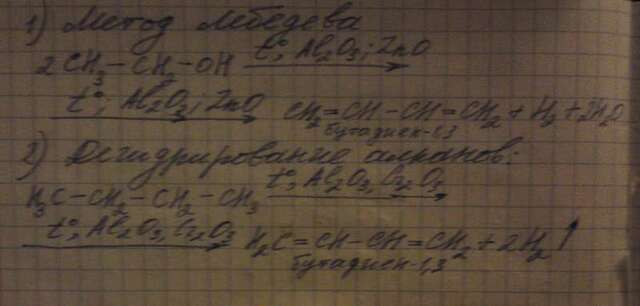 1) Метод Лебедева
2CH₃-CH₂-OH t°, Al₂O₃, ZnO
t°, Al₂O₃, ZnO CH₂=CH-CH=CH₂ + H₂ + 2H₂O
бутадиен-1,3
2) Дегидрирование алканов:
H₃C-CH₂-CH₂-CH₃ t°, Al₂O₃, Cr₂O₃
t°, Al₂O₃, Cr₂O₃ H₂C=CH-CH=CH₂ + 2H₂↑
бутадиен-1,3